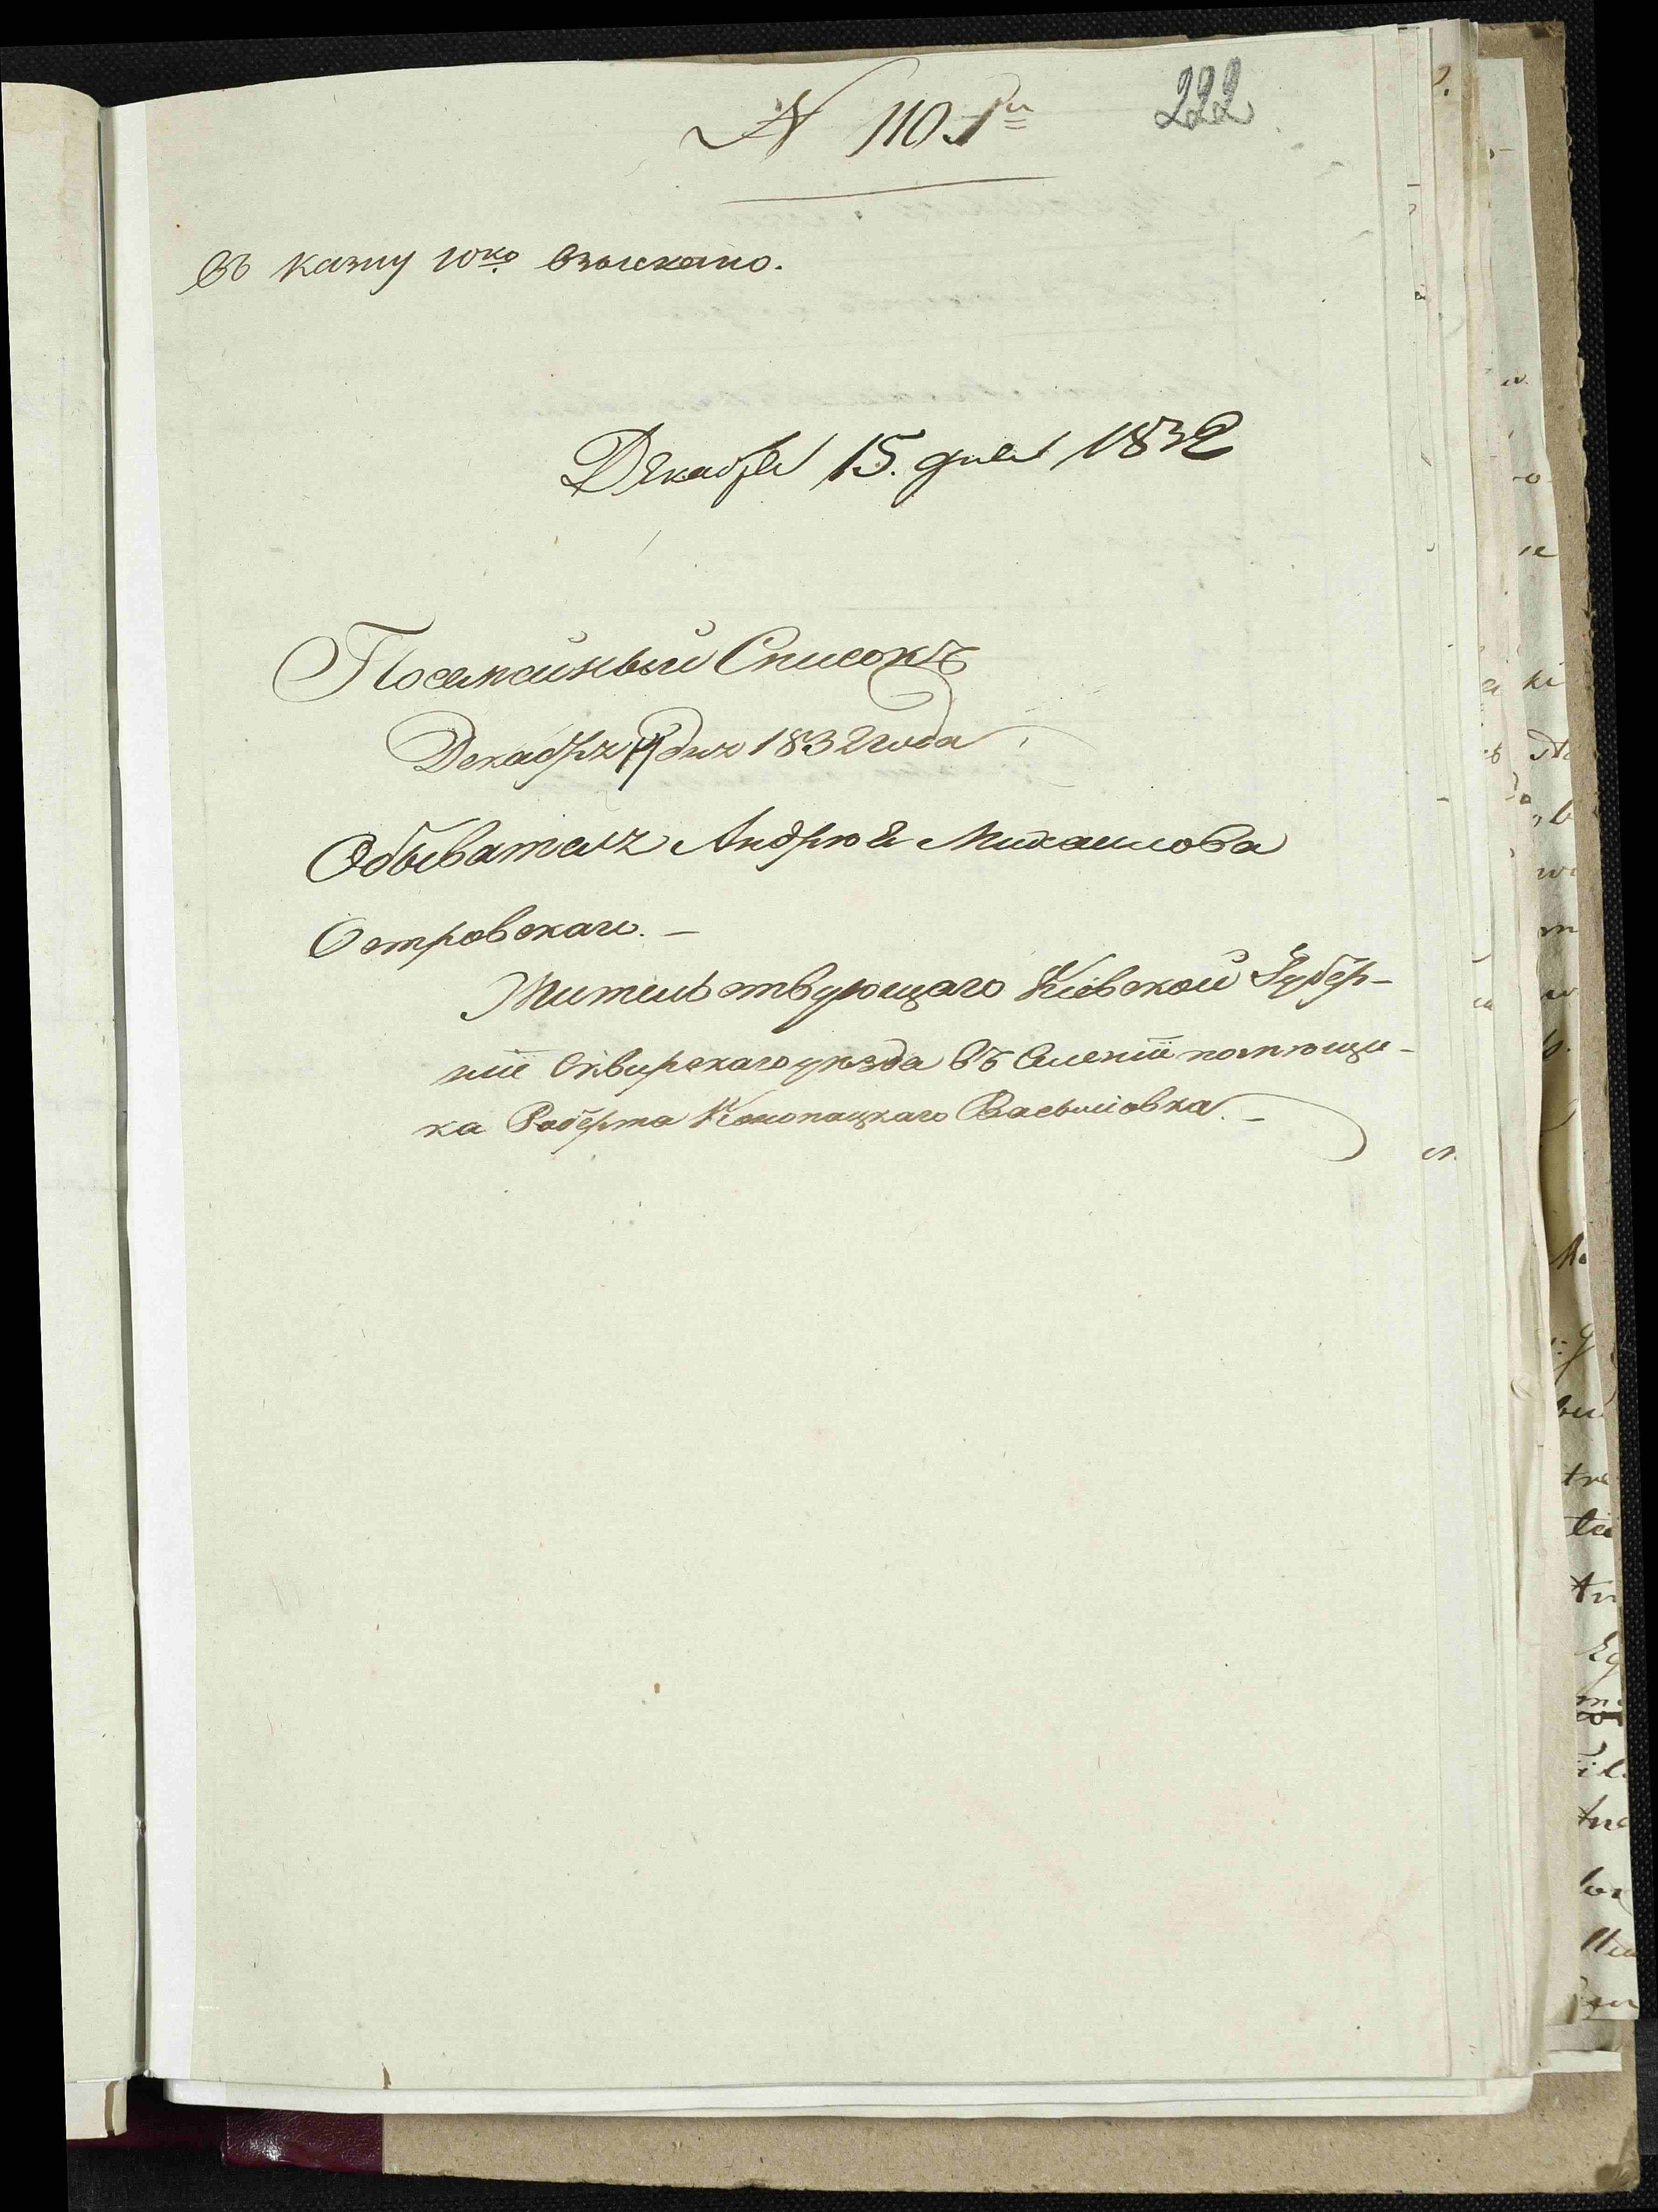 222
№ 110
въ казну 10 ко взыскано.
Декабря 15. дня 1832
Посемейный Списокъ
Декабря дня 1832 года
Обывателя Андрѣя Михайлова
Островскаго. –
Жительствующаго Кіевской Губер-
ніи Сквирскаго уѣзда въ Именіи помѣщи-
ка Роберта Конопацкаго Васьковка. –